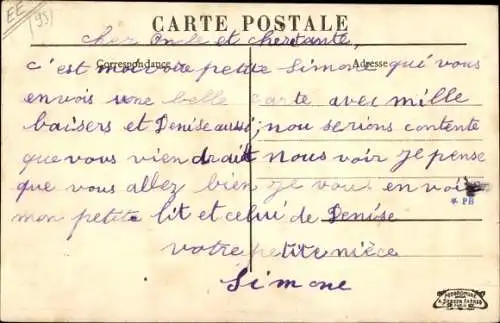 EE
CARTE POSTALE
cher Oncle et cher tante,
Correspondance
Adresse
c'est moi votre petite Simone qui vous
envois une belle carte avec mille
baisers et Denise aussi, nou serions contente
que vous vien drait Nous voir je pense
que vous allez bien je vous en voi
* PB
mon petite lit et celui de Denise
votre petite nièce
Simone